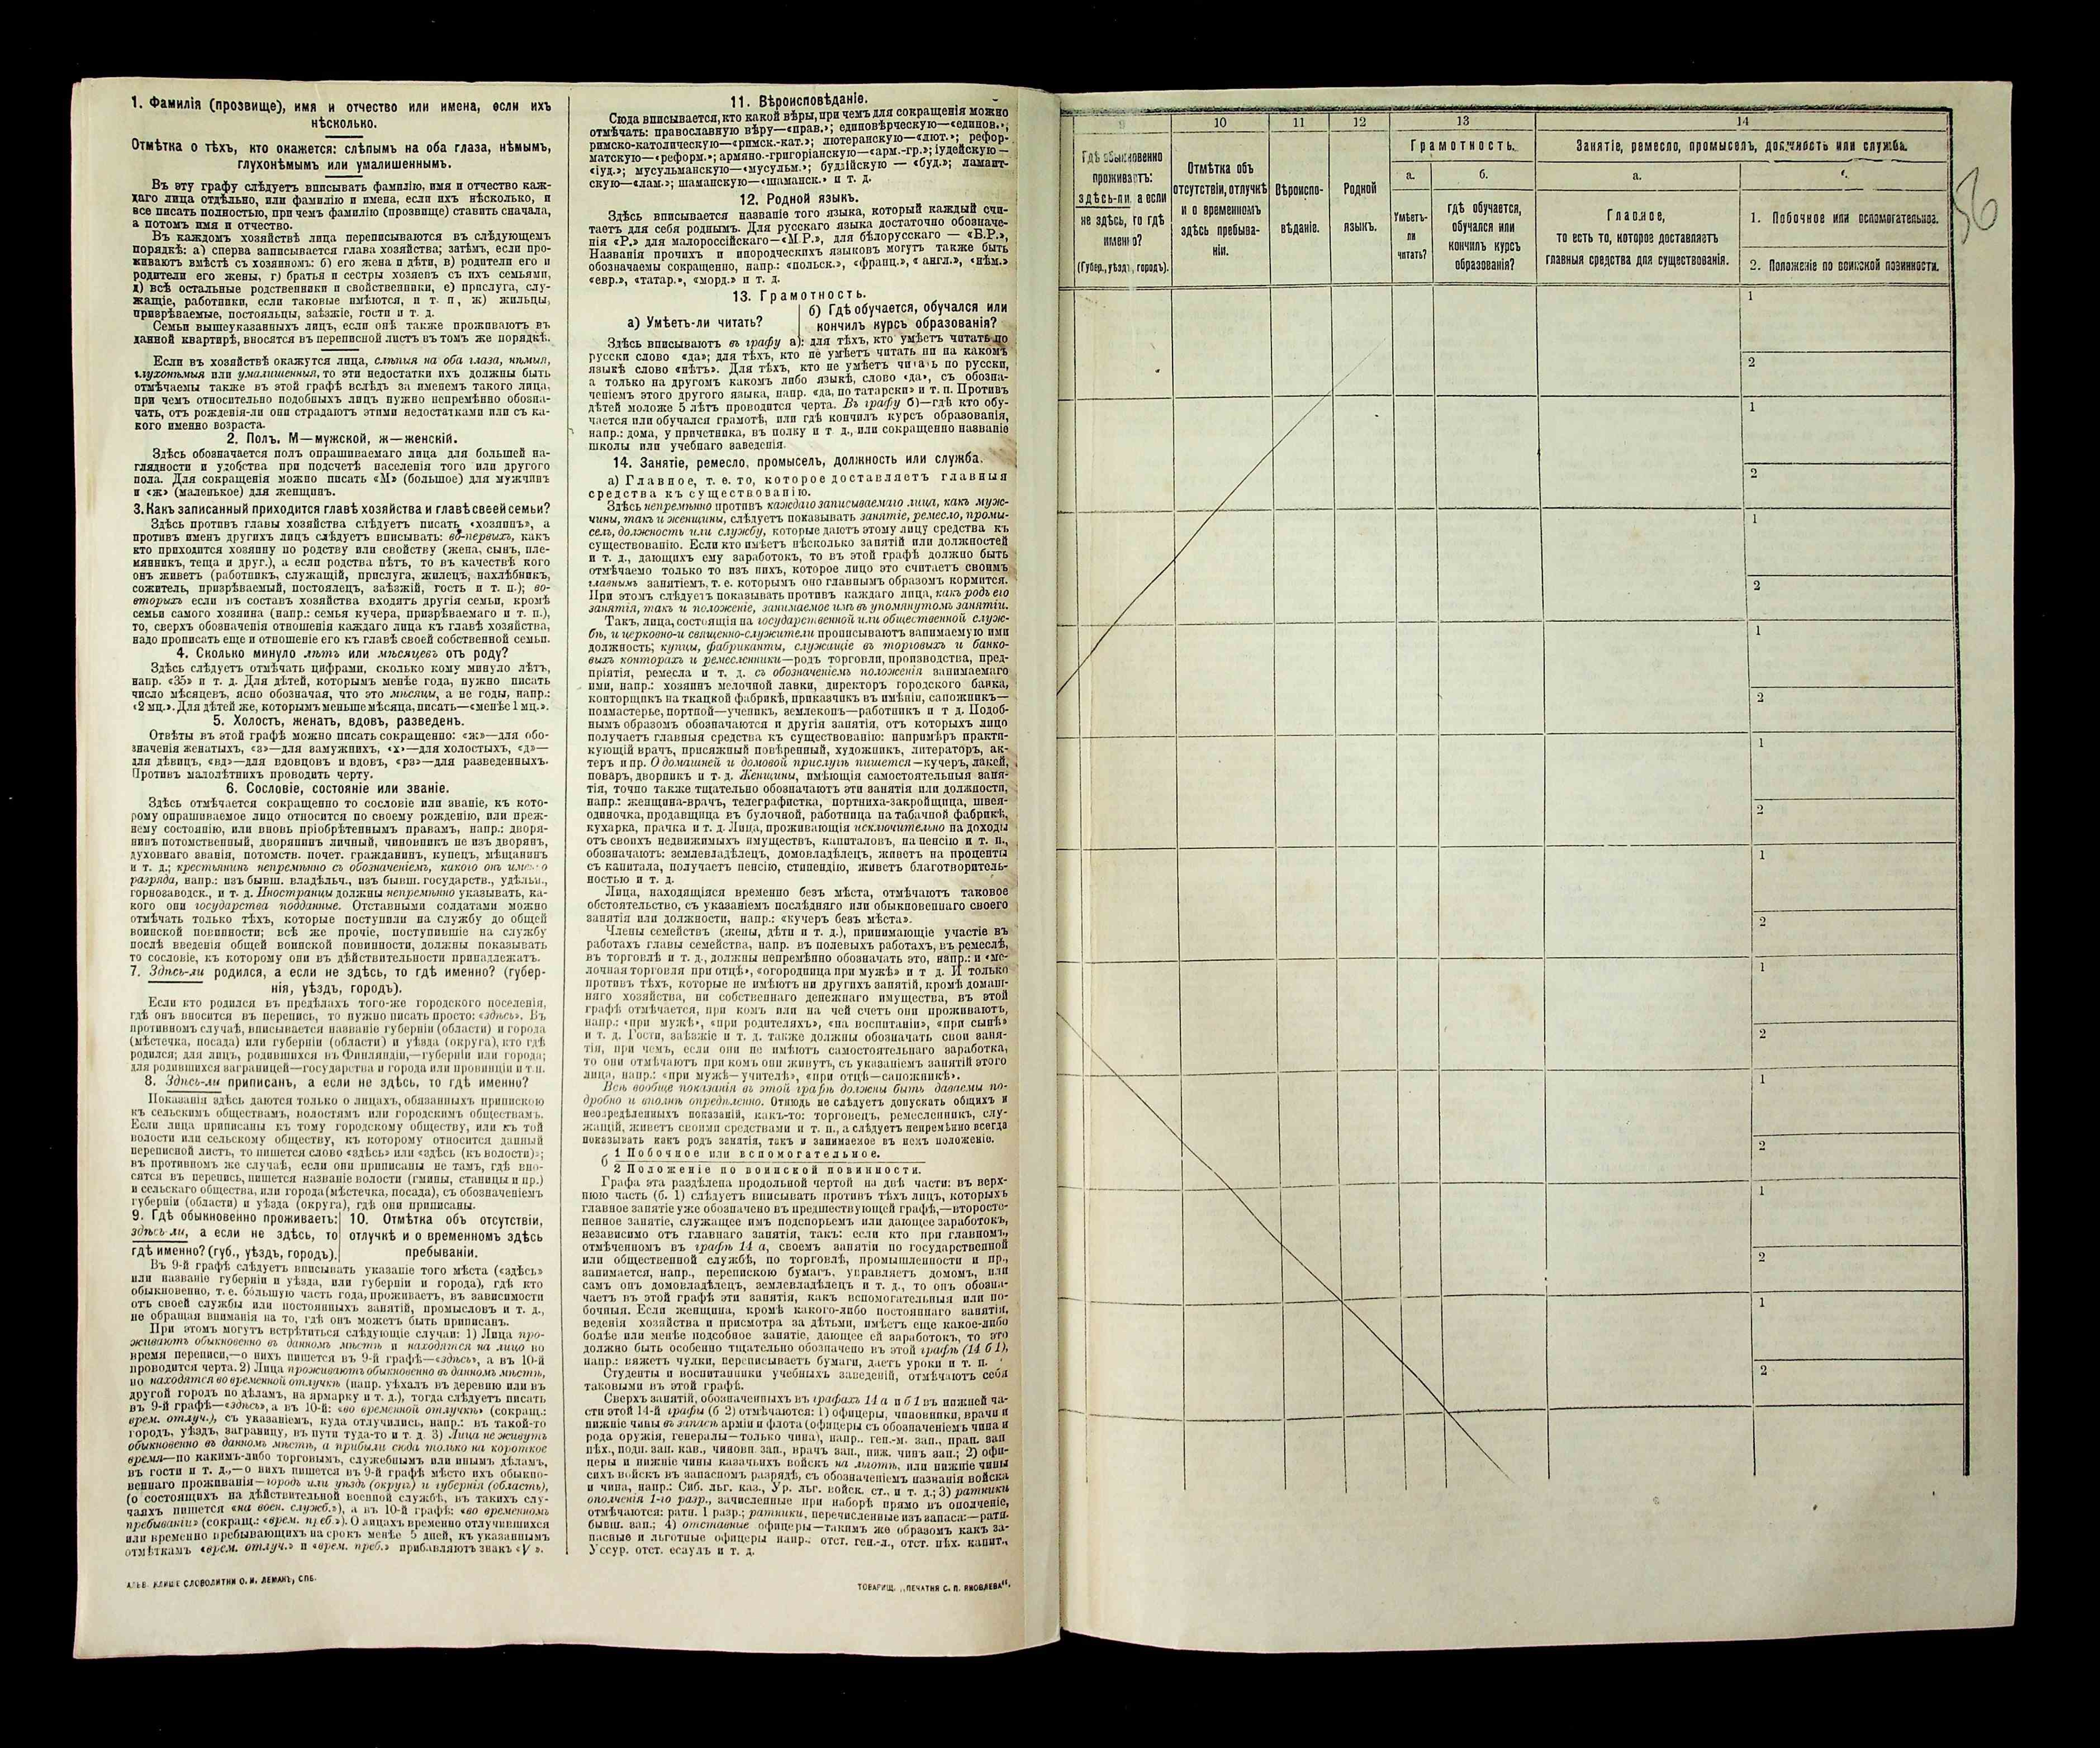 1. Фамилія (прозвище), имя и отчество или имена, если ихъ
нѣсколько.
Отмѣтка о тѣхъ, кто окажется: слѣпымъ на оба глаза, нѣмымъ,
глухонѣмымъ или умалишеннымъ.
Въ эту графу слѣдуетъ вписывать фамилію, имя и отчество каж-
даго лица отдѣльно, или фамилію и имена, если ихъ нѣсколько, и
все писать полностью, при чемъ фамилію (прозвище) ставить сначала,
а потомъ имя и отчество.
Въ каждомъ хозяйствѣ лица переписываются въ слѣдующемъ
порядкѣ: а) сперва записывается глава хозяйства; затѣмъ, если про-
живаютъ вмѣстѣ съ хозяиномъ: б) его жена и дѣти, в) родители его и
родители его жены, г) братья и сестры хозяевъ съ ихъ семьями,
д) всѣ остальные родственники и свойственники, е) прислуга, слу-
жащіе, работники, если таковые имѣются, и т. п, ж) жильцы,
призрѣваемые, постояльцы, заѣзжіе, гости и т. д.
Семьи вышеуказанныхъ лицъ, если онѣ также проживаютъ въ
данной квартирѣ, вносятся въ переписной листъ въ томъ же порядкѣ.
Если въ хозяйствѣ окажутся лица, слѣпыя на оба глаза, нѣмыя,
глухонѣмыя или умалишенныя, то эти недостатки ихъ должны быть
отмѣчаемы также въ этой графѣ вслѣдъ за именемъ такого лица,
при чемъ относительно подобныхъ лицъ нужно непремѣнно обозна-
чать, отъ рожденія-ли они страдаютъ этими недостатками или съ ка-
кого именно возраста.
2. Полъ, М—мужской, ж—женскій.
Здѣсь обозначается полъ опрашиваемаго лица для большей на-
глядности и удобства при подсчетѣ населенія того или другого
пола. Для сокращенія можно писать «М» (большое) для мужчинъ
и «ж» (маленькое) для женщинъ.
3. Какъ записанный приходится главѣ хозяйства и главѣ своей семьи?
Здѣсь противъ главы хозяйства слѣдуетъ писать «хозяинъ», а
противъ именъ другихъ лицъ слѣдуетъ вписывать: во-первыхъ, какъ
кто приходится хозяину по родству или свойству (жена, сынъ, пле-
мянникъ, теща и друг.), а если родства нѣтъ, то въ качествѣ кого
онъ живетъ (работникъ, служащій, прислуга, жилецъ, нахлѣбникъ,
сожитель, призрѣваемый, постоялецъ, заѣзжій, гость и т. п.); во-
вторыхъ если въ составъ хозяйства входятъ другія семьи, кромѣ
семьи самого хозяина (напр.: семья кучера, призрѣваемаго и т. п.),
то, сверхъ обозначенія отношенія каждаго лица къ главѣ хозяйства,
надо прописать еще и отношеніе его къ главѣ своей собственной семьи.
4. Сколько минуло лѣтъ или мѣсяцевъ отъ роду?
Здѣсь слѣдуетъ отмѣчать цифрами, сколько кому минуло лѣтъ,
напр. «35» и т. д. Для дѣтей, которымъ менѣе года, нужно писать
число мѣсяцевъ, ясно обозначая, что это мѣсяцы, а не годы, напр.:
«2 мц.». Для дѣтей же, которымъ меньше мѣсяца, писать—«менѣе 1 мц.».
5. Холостъ, женатъ, вдовъ, разведенъ.
Отвѣты въ этой графѣ можно писать сокращенно: «ж»—для обо-
значенія женатыхъ, «з»—для замужнихъ, «х»—для холостыхъ, «д»—
для дѣвицъ, «вд»—для вдовцовъ и вдовъ, «рз»—для разведенныхъ.
Противъ малолѣтнихъ проводить черту.
6. Сословіе, состояніе или званіе.
Здѣсь отмѣчается сокращенно то сословіе или званіе, къ кото-
рому опрашиваемое лицо относится по своему рожденію, или преж-
нему состоянію, или вновь пріобрѣтеннымъ правамъ, напр.: дворя-
нинъ потомственный, дворянинъ личный, чиновникъ не изъ дворянъ,
духовнаго званія, потомств. почет. гражданинъ, купецъ, мѣщанинъ
и т. д.; крестьянинъ непремѣнно съ обозначеніемъ, какого онъ именно
разряда, напр.: изъ бывш. владѣльч., изъ бывш. государств., удѣльн.,
горнозаводск., и т. д. Иностранцы должны непремѣнно указывать, ка-
кого они государства подданные. Отставными солдатами можно
отмѣчать только тѣхъ, которые поступили на службу до общей
воинской повинности; всѣ же прочіе, поступившіе на службу
послѣ введенія общей воинской повинности, должны показывать
то сословіе, къ которому они въ дѣйствительности принадлежатъ.
7. Здѣсь-ли родился, а если не здѣсь, то гдѣ именно? (губер-
нія, уѣздъ, городъ).
Если кто родился въ предѣлахъ того-же городского поселенія,
гдѣ онъ вносится въ перепись, то нужно писать просто: «здѣсь». Въ
противномъ случаѣ, вписывается названіе губерніи (области) и города
(мѣстечка, посада) или губерніи (области) и уѣзда (округа), кто гдѣ
родился; для лицъ, родившихся въ Финляндіи,—губерніи или города;
для родившихся заграницей—государства и города или провинціи и т.п.
8. Здѣсь-ли приписанъ, а если не здѣсь, то гдѣ именно?
Показанія здѣсь даются только о лицахъ, обязанныхъ припискою
къ сельскимъ обществамъ, волостямъ или городскимъ обществамъ.
Если лица приписаны къ тому городскому обществу, или къ той
волости или сельскому обществу, къ которому относится данный
переписной листъ, то пишется слово «здѣсь» или «здѣсь (къ волости)»;
въ противномъ же случаѣ, если они приписаны не тамъ, гдѣ вно-
сятся въ перепись, пишется названіе волости (гмины, станицы и пр.)
и сельскаго общества, или города (мѣстечка, посада), съ обозначеніемъ
губерніи (области) и уѣзда (округа), гдѣ они приписаны.
9. Гдѣ обыкновенно проживаетъ: здѣсь-ли, а если не здѣсь, то гдѣ именно? (губ., уѣздъ, городъ).
10. Отмѣтка объ отсутствіи, отлучкѣ и о временномъ здѣсь пребываніи.
Въ 9-й графѣ слѣдуетъ вписывать указаніе того мѣста («здѣсь»
или названіе губерніи и уѣзда, или губерніи и города), гдѣ кто
обыкновенно, т. е. большую часть года, проживаетъ, въ зависимости
отъ своей службы или постоянныхъ занятій, промысловъ и т. д.,
не обращая вниманія на то, гдѣ онъ можетъ быть приписанъ.
При этомъ могутъ встрѣтиться слѣдующіе случаи: 1) Лица про-
живаютъ обыкновенно въ данномъ мѣстѣ и находятся на лицо во
время переписи,—о нихъ пишется въ 9-й графѣ—«здѣсь», а въ 10-й
проводится черта. 2) Лица проживаютъ обыкновенно въ данномъ мѣстѣ,
но находятся во временной отлучкѣ (напр. уѣхалъ въ деревню или въ
другой городъ по дѣламъ, на ярмарку и т. д.), тогда слѣдуетъ писать
въ 9-й графѣ—«здѣсь», а въ 10-й: «во временной отлучкѣ» (сокращ.:
врем. отлуч.), съ указаніемъ, куда отлучились, напр.: въ такой-то
городъ, уѣздъ, заграницу, въ пути туда-то и т. д. 3) Лица не живутъ
обыкновенно въ данномъ мѣстѣ, а прибыли сюда только на короткое
время—по какимъ-либо торговымъ, служебнымъ или инымъ дѣламъ,
въ гости и т. д.,—о нихъ пишется въ 9-й графѣ мѣсто ихъ обыкно-
веннаго проживанія—городъ или уѣздъ (округъ) и губернія (область),
(о состоящихъ на дѣйствительной военной службѣ, въ такихъ слу-
чаяхъ пишется «на воен. служб.»), а въ 10-й графѣ: «во временномъ
пребываніи» (сокращ.: «врем. преб.»). О лицахъ временно отлучившихся
или временно пребывающихъ на срокъ менѣе 5 дней, къ указаннымъ
отмѣткамъ «врем. отлуч.» и «врем. преб.» прибавляютъ знакъ «V».
КЛИШЕ СЛОВОЛИТНИ О. И. ЛЕМАНЪ, СПБ.
11. Вѣроисповѣданіе.
Сюда вписывается, кто какой вѣры, при чемъ для сокращенія можно
отмѣчать: православную вѣру—«прав.»; единовѣрческую—«единов.»;
римско-католическую—«римск.-кат.»; лютеранскую—«лют.»; рефор-
матскую—«реформ.»; армяно.-григоріанскую—«арм.-гр.»; іудейскую—
«іуд.»; мусульманскую—«мусульм.»; буддійскую — «буд.»; ламаит-
скую—«лам.»; шаманскую—«шаманск.» и т. д.
12. Родной языкъ.
Здѣсь вписывается названіе того языка, который каждый счи-
таетъ для себя роднымъ. Для русскаго языка достаточно обозначе-
нія «Р.» для малороссійскаго—«М.Р.», для бѣлорусскаго — «Б.Р.»,
Названія прочихъ и инородческихъ языковъ могутъ также быть
обозначаемы сокращенно, напр.: «польск.», «франц.», «англ.», «нѣм.»
«евр.», «татар.», «морд.» и т. д.
13. Грамотность.
а) Умѣетъ-ли читать?
б) Гдѣ обучается, обучался или
кончилъ курсъ образованія?
Здѣсь вписываютъ въ графу а): для тѣхъ, кто умѣетъ читать по
русски слово «да»; для тѣхъ, кто не умѣетъ читать ни на какомъ
языкѣ слово «нѣтъ». Для тѣхъ, кто не умѣетъ читать по русски,
а только на другомъ какомъ либо языкѣ, слово «да», съ обозна-
ченіемъ этого другого языка, напр. «да, по татарски» и т. п. Противъ
дѣтей моложе 5 лѣтъ проводится черта. Въ графу б)—гдѣ кто обу-
чается или обучался грамотѣ, или гдѣ кончилъ курсъ образованія,
напр.: дома, у причетника, въ полку и т. д., или сокращенно названіе
школы или учебнаго заведенія.
14. Занятіе, ремесло, промыселъ, должность или служба.
а) Главное, т. е. то, которое доставляетъ главныя
средства къ существованію.
Здѣсь непремѣнно противъ каждаго записываемаго лица, какъ муж-
чины, такъ и женщины, слѣдуетъ показывать занятіе, ремесло, промы-
селъ, должность или службу, которые даютъ этому лицу средства къ
существованію. Если кто имѣетъ нѣсколько занятій или должностей
и т. д., дающихъ ему заработокъ, то въ этой графѣ должно быть
отмѣчаемо только то изъ нихъ, которое лицо это считаетъ своимъ
главнымъ занятіемъ, т. е. которымъ оно главнымъ образомъ кормится.
При этомъ слѣдуетъ показывать противъ каждаго лица, какъ родъ его
занятія, такъ и положеніе, занимаемое имъ въ упомянутомъ занятіи.
Такъ, лица, состоящія на государственной или общественной служ-
бѣ, и церковно-и священно-служители прописываютъ занимаемую ими
должность; купцы, фабриканты, служащіе въ торговыхъ и банко-
выхъ конторахъ и ремесленники—родъ торговли, производства, пред-
пріятія, ремесла и т. д. съ обозначеніемъ положенія занимаемаго
ими, напр.: хозяинъ мелочной лавки, директоръ городского банка,
конторщикъ на ткацкой фабрикѣ, приказчикъ въ имѣніи, сапожникъ—
подмастерье, портной—ученикъ, землекопъ—работникъ и т д. Подоб-
нымъ образомъ обозначаются и другія занятія, отъ которыхъ лицо
получаетъ главныя средства къ существованію: напримѣръ практи-
кующій врачъ, присяжный повѣренный, художникъ, литераторъ, ак-
теръ и пр. О домашней и домовой прислугѣ пишется—кучеръ, лакей,
поваръ, дворникъ и т. д. Женщины, имѣющія самостоятельныя заня-
тія, точно также тщательно обозначаютъ эти занятія или должности,
напр.: женщина-врачъ, телеграфистка, портниха-закройщица, швея-
одиночка, продавщица въ булочной, работница на табачной фабрикѣ,
кухарка, прачка и т. д. Лица, проживающія исключительно на доходы
отъ своихъ недвижимыхъ имуществъ, капиталовъ, на пенсію и т. п.,
обозначаютъ: землевладѣлецъ, домовладѣлецъ, живетъ на проценты
съ капитала, получаетъ пенсію, стипендію, живетъ благотворитель-
ностью и т. д.
Лица, находящіяся временно безъ мѣста, отмѣчаютъ таковое
обстоятельство, съ указаніемъ послѣдняго или обыкновеннаго своего
занятія или должности, напр.: «кучеръ безъ мѣста».
Члены семействъ (жены, дѣти и т. д.), принимающіе участіе въ
работахъ главы семейства, напр. въ полевыхъ работахъ, въ ремеслѣ,
въ торговлѣ и т. д., должны непремѣнно обозначать это, напр.: и «ме-
лочная торговля при отцѣ», «огородница при мужѣ» и т д. И только
противъ тѣхъ, которые не имѣютъ ни другихъ занятій, кромѣ домаш-
няго хозяйства, ни собственнаго денежнаго имущества, въ этой
графѣ отмѣчается, при комъ или на чей счетъ они проживаютъ,
напр.: «при мужѣ», «при родителяхъ», «на воспитаніи», «при сынѣ»
и т. д. Гости, заѣзжіе и т. д. также должны обозначать свои заня-
тія, при чемъ, если они не имѣютъ самостоятельнаго заработка,
то они отмѣчаютъ при комъ они живутъ, съ указаніемъ занятій этого
лица, напр.: «при мужѣ—учителѣ», «при отцѣ—сапожникѣ».
Всѣ вообще показанія въ этой графѣ должны быть даваемы по-
дробно и вполнѣ опредѣленно. Отнюдь не слѣдуетъ допускать общихъ и
неопредѣленныхъ показаній, какъ-то: торговецъ, ремесленникъ, слу-
жащій, живетъ своими средствами и т. п., а слѣдуетъ непремѣнно всегда
показывать какъ родъ занятія, такъ и занимаемое въ немъ положеніе.
б 1 Побочное или вспомогательное.
2 Положеніе по воинской повинности.
Графа эта раздѣлена продольной чертой на двѣ части: въ верх-
нюю часть (б. 1) слѣдуетъ вписывать противъ тѣхъ лицъ, которыхъ
главное занятіе уже обозначено въ предшествующей графѣ,—второсте-
пенное занятіе, служащее имъ подспорьемъ или дающее заработокъ,
независимо отъ главнаго занятія, такъ: если кто при главномъ,
отмѣченномъ въ графѣ 14 а, своемъ занятіи по государственной
или общественной службѣ, по торговлѣ, промышленности и пр.,
занимается, напр., перепискою бумагъ, управляетъ домомъ, или
самъ онъ домовладѣлецъ, землевладѣлецъ и т. д., то онъ обозна-
чаетъ въ этой графѣ эти занятія, какъ вспомогательныя или по-
бочныя. Если женщина, кромѣ какого-либо постояннаго занятія,
веденія хозяйства и присмотра за дѣтьми, имѣетъ еще какое-либо
болѣе или менѣе подсобное занятіе, дающее ей заработокъ, то это
должно быть особенно тщательно обозначено въ этой графѣ (14 б 1),
напр.: вяжетъ чулки, переписываетъ бумаги, даетъ уроки и т. п.
Студенты и воспитанники учебныхъ заведеній, отмѣчаютъ себя
таковыми въ этой графѣ.
Сверхъ занятій, обозначенныхъ въ графахъ 14 а и б 1 въ нижней ча-
сти этой 14-й графы (б 2) отмѣчаются: 1) офицеры, чиновники, врачи и
нижніе чины въ запасѣ арміи и флота (офицеры съ обозначеніемъ чина и
рода оружія, генералы—только чина), напр.. ген.-м. зап., прап. зап
пѣх., подп. зап. кав., чиновн зап., врачъ зап., ниж. чинъ зап.; 2) офи-
церы и нижніе чины казачьихъ войскъ на льготѣ, или нижніе чины
сихъ войскъ въ запасномъ разрядѣ, съ обозначеніемъ названія войска
и чина, напр.: Сиб. льг. каз., Ур. льг. войск. ст., и т. д.; 3) ратники
ополченія 1-го разр., зачисленные при наборѣ прямо въ ополченіе,
отмѣчаются: ратн. 1 разр.; ратники, перечисленные изъ запаса:—ратн.
бывш. зап.; 4) отставные офицеры—такимъ же образомъ какъ за-
пасные и льготные офицеры напр.: отст. ген.-л., отст. пѣх. капит.,
Уссур. отст. есаулъ и т. д.
ТОВАРИЩ. „ПЕЧАТНЯ С. П. ЯКОВЛЕВА".
9
10
11
12
13
14
Гдѣ обыкновенно
проживаетъ:
здѣсь-ли, а если
не здѣсь, то гдѣ
именно?
(Губер., уѣздъ, городъ).
Отмѣтка объ
отсутствіи, отлучкѣ
и о временномъ
здѣсь пребыва-
ніи.
Вѣроиспо-
вѣданіе.
Родной
языкъ.
Грамотность.
а.
Умѣетъ-
ли
читать?
б.
гдѣ обучается,
обучался или
кончилъ курсъ
образованія?
Занятіе, ремесло, промыселъ, должность или служба.
а.
Главное,
то есть то, которое доставляетъ
главныя средства для существованія.
1. Побочное или вспомогательное.
2. Положеніе по воинской повинности.
56
1
2
1
2
1
2
1
2
1
2
1
2
1
2
1
2
1
2
1
2